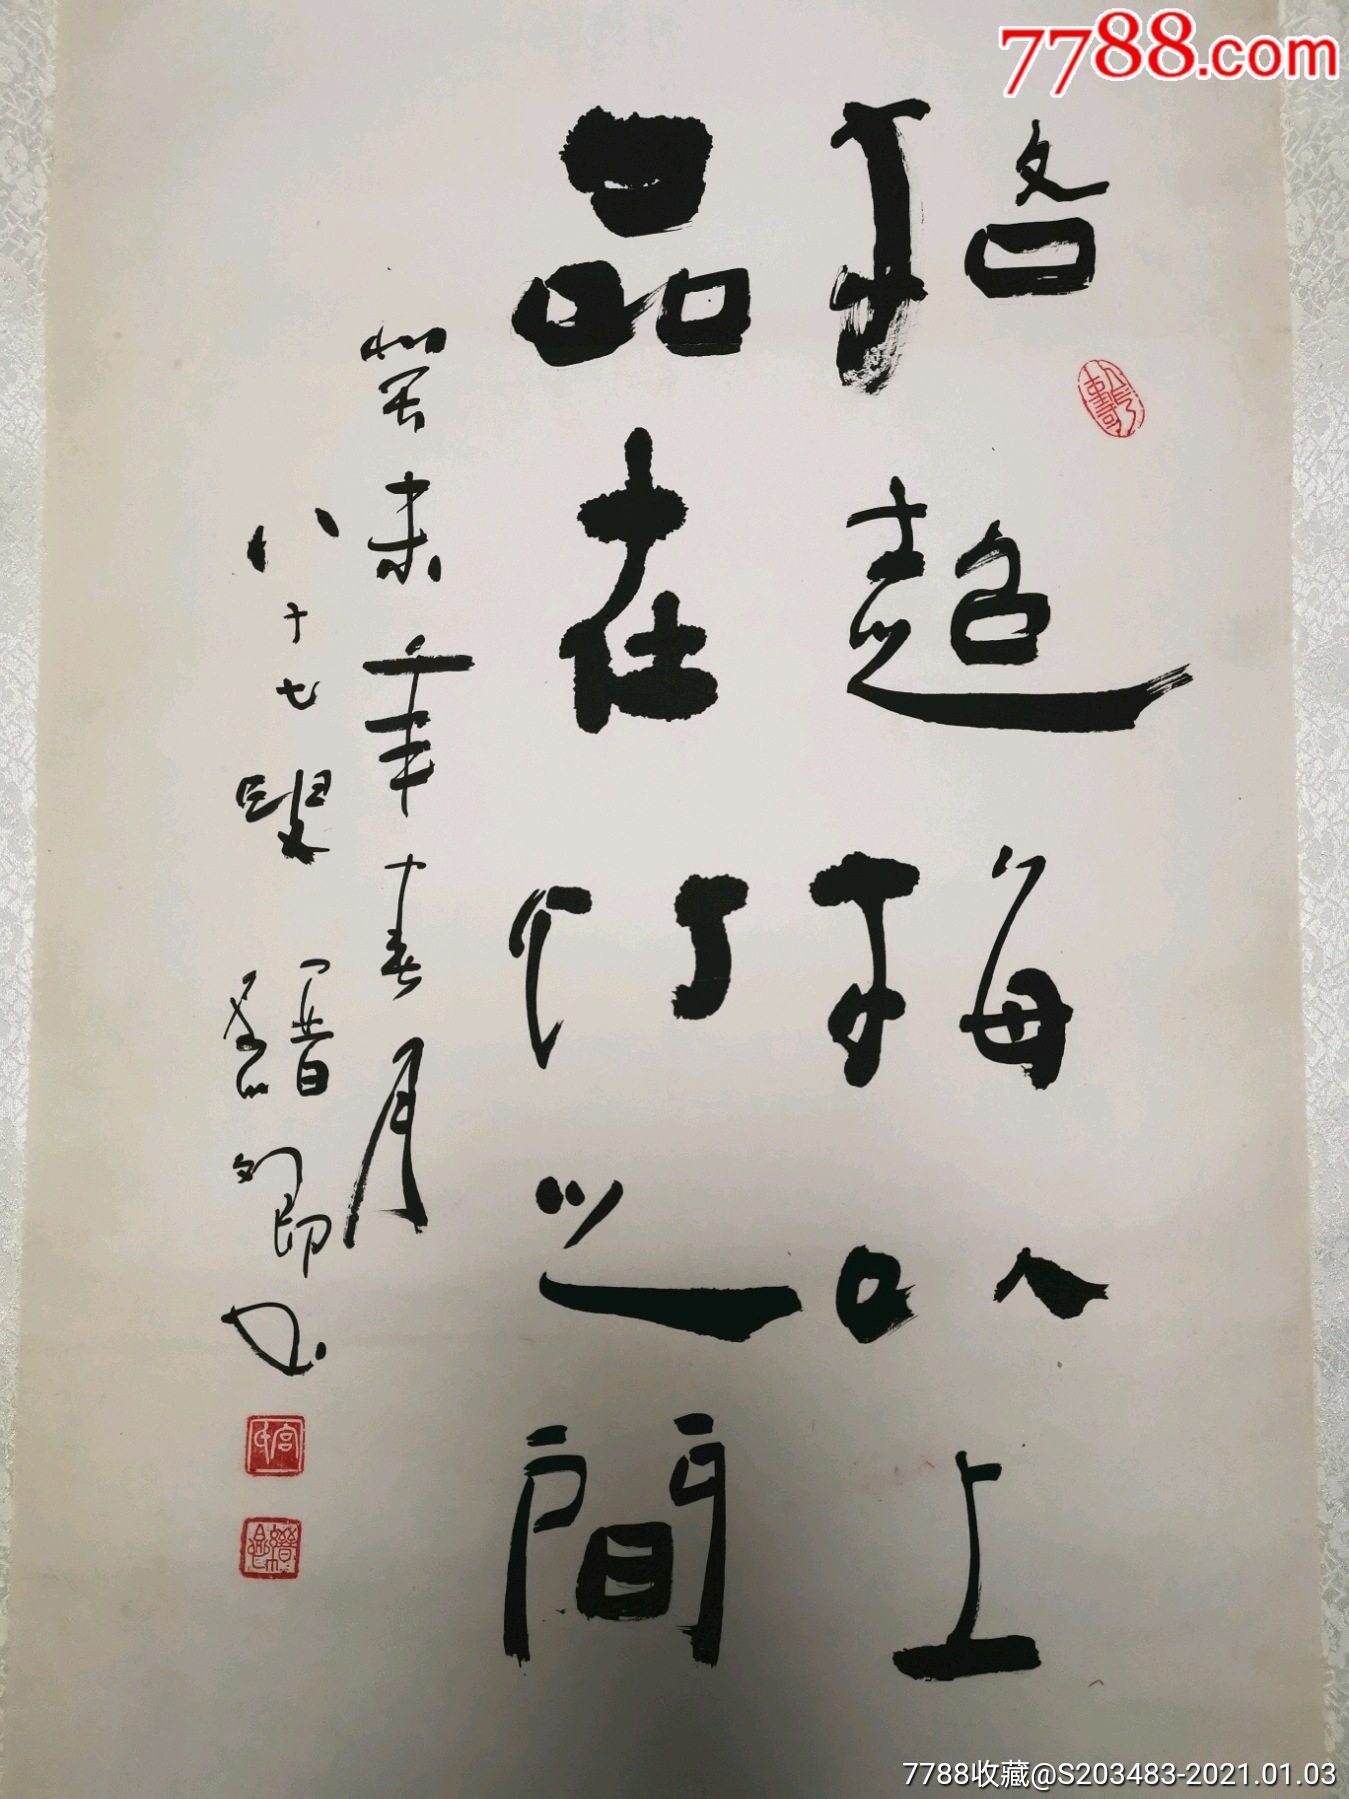 7788.com
格超梅以上
品在竹之間
癸未年春月
八十七叟
7788收藏@S203483-2021.01.03